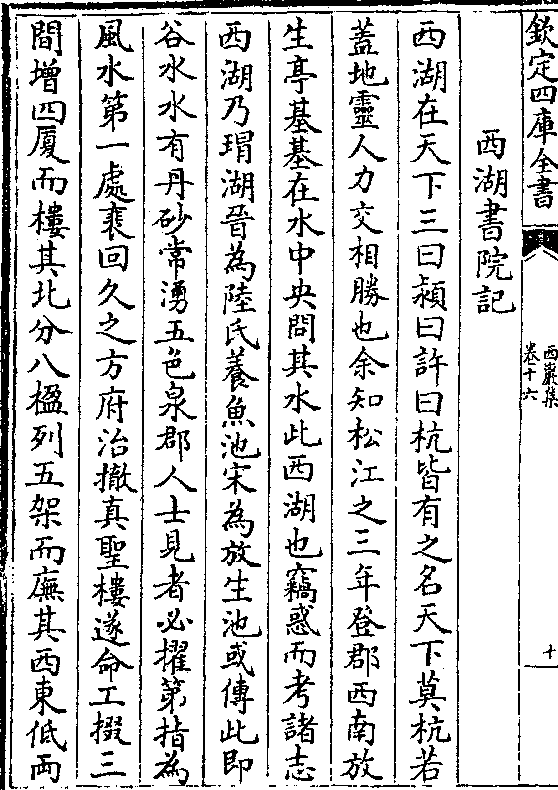 欽定四庫全書
西巖集
卷十六
十
西湖書院記
西湖在天下三曰潁曰許曰杭皆有之名天下莫杭若
蓋地靈人力交相勝也余知松江之三年登郡西南放
生亭基基在水中央問其水此西湖也竊惑而考諸志
西湖乃瑁湖晉為陸氏養魚池宋為放生池或傳此即
谷水水有丹砂常湧五色泉郡人士見者必擢第指為
風水第一處裵回久之方府治撤真聖樓遂命工掇三
間增四厦而樓其北分八楹列五架而廡其西東低兩